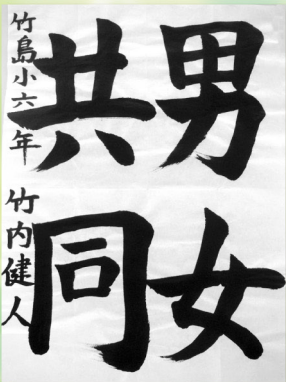 男女
共同
竹島小六年 竹内健人